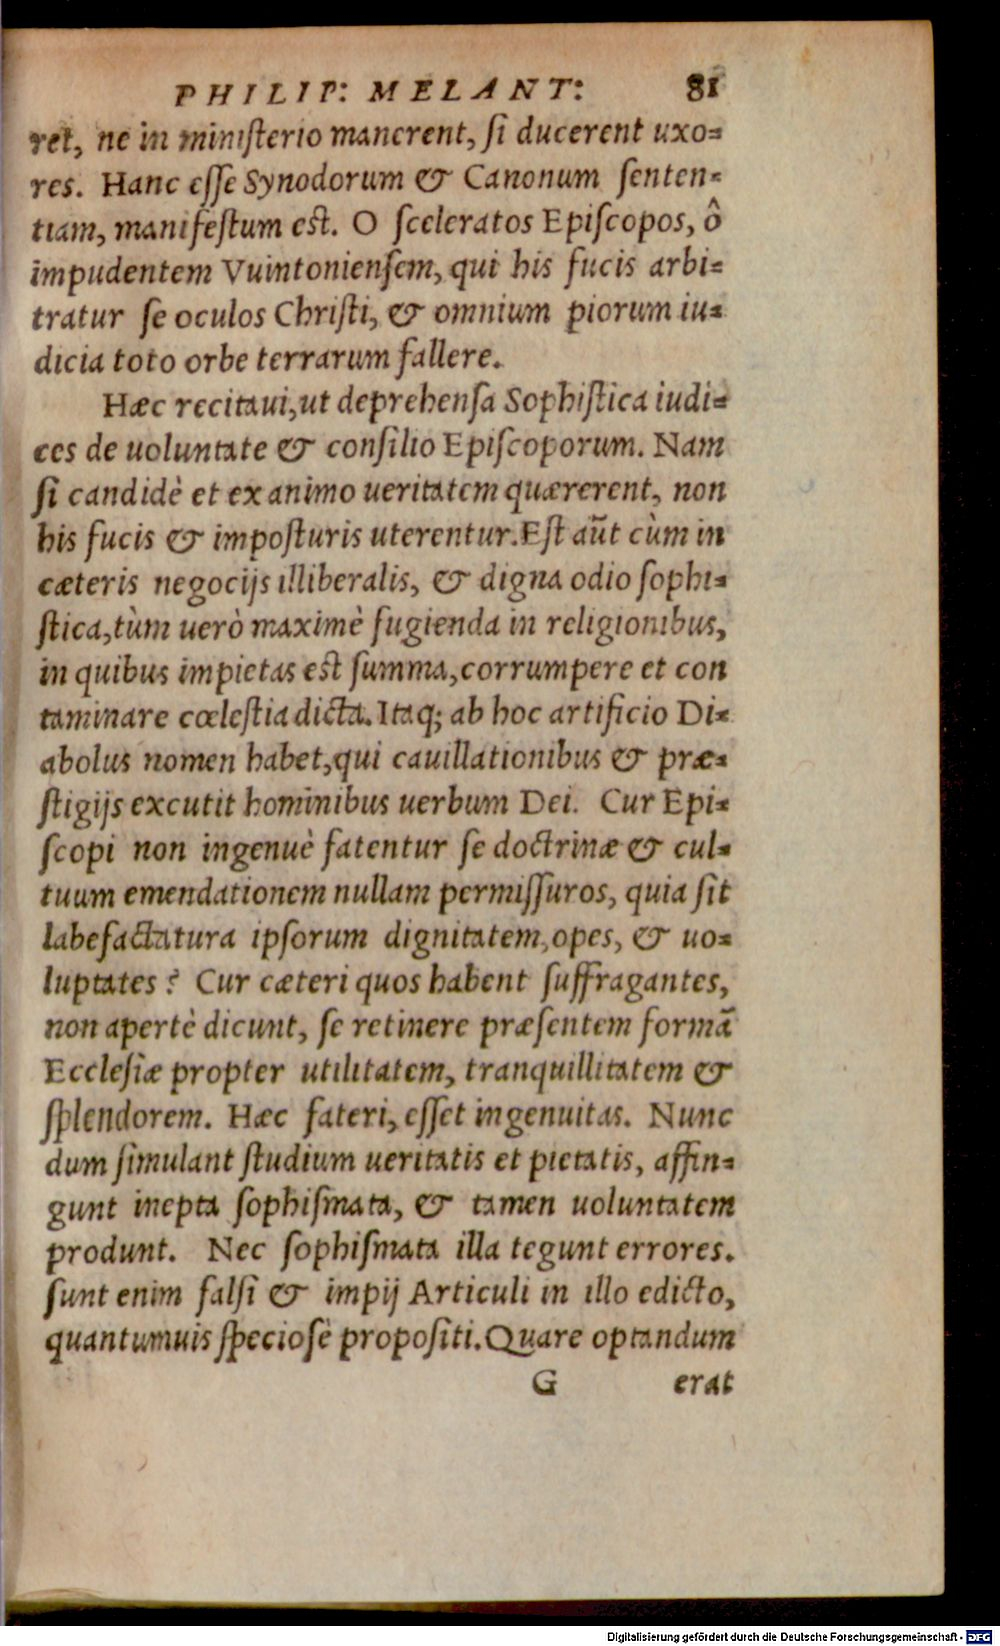 PHILIP: MELANT: 81
ret, ne in miniſterio manerent, ſi ducerent uxo=
res. Hanc eſſe Synodorum & Canonum ſenten=
tiam, manifeſtum eſt. O ſceleratos Epiſcopos, ô
impudentem Vuintonienſem, qui his fucis arbi=
tratur ſe oculos Chriſti, & omnium piorum iu=
dicia toto orbe terrarum fallere.
Hæc recitaui, ut deprehenſa Sophiſtica iudi=
ces de uoluntate & conſilio Epiſcoporum. Nam
ſi candidè et ex animo ueritatem quærerent, non
his fucis & impoſturis uterentur. Eſt aũt cùm in
cæteris negocijs illiberalis, & digna odio ſophi=
ſtica, tùm uerò maximè fugienda in religionibus,
in quibus impietas eſt ſumma, corrumpere et con
taminare cœleſtia dicta. Itaq; ab hoc artificio Di=
abolus nomen habet, qui cauillationibus & præ=
ſtigijs excutit hominibus uerbum Dei. Cur Epi=
ſcopi non ingenuè fatentur ſe doctrinæ & cul=
tuum emendationem nullam permiſſuros, quia ſit
labefactatura ipſorum dignitatem, opes, & uo=
luptates? Cur cæteri quos habent ſuffragantes,
non apertè dicunt, ſe retinere præſentem formã
Eccleſiæ propter utilitatem, tranquillitatem &
ſplendorem. Hæc fateri, eſſet ingenuitas. Nunc
dum ſimulant ſtudium ueritatis et pietatis, affin=
gunt inepta ſophiſmata, & tamen uoluntatem
produnt. Nec ſophiſmata illa tegunt errores.
ſunt enim falſi & impij Articuli in illo edicto,
quantumuis ſpecioſè propoſiti. Quare optandum
G erat
Digitalisierung gefördert durch die Deutsche Forschungsgemeinschaft - DFG